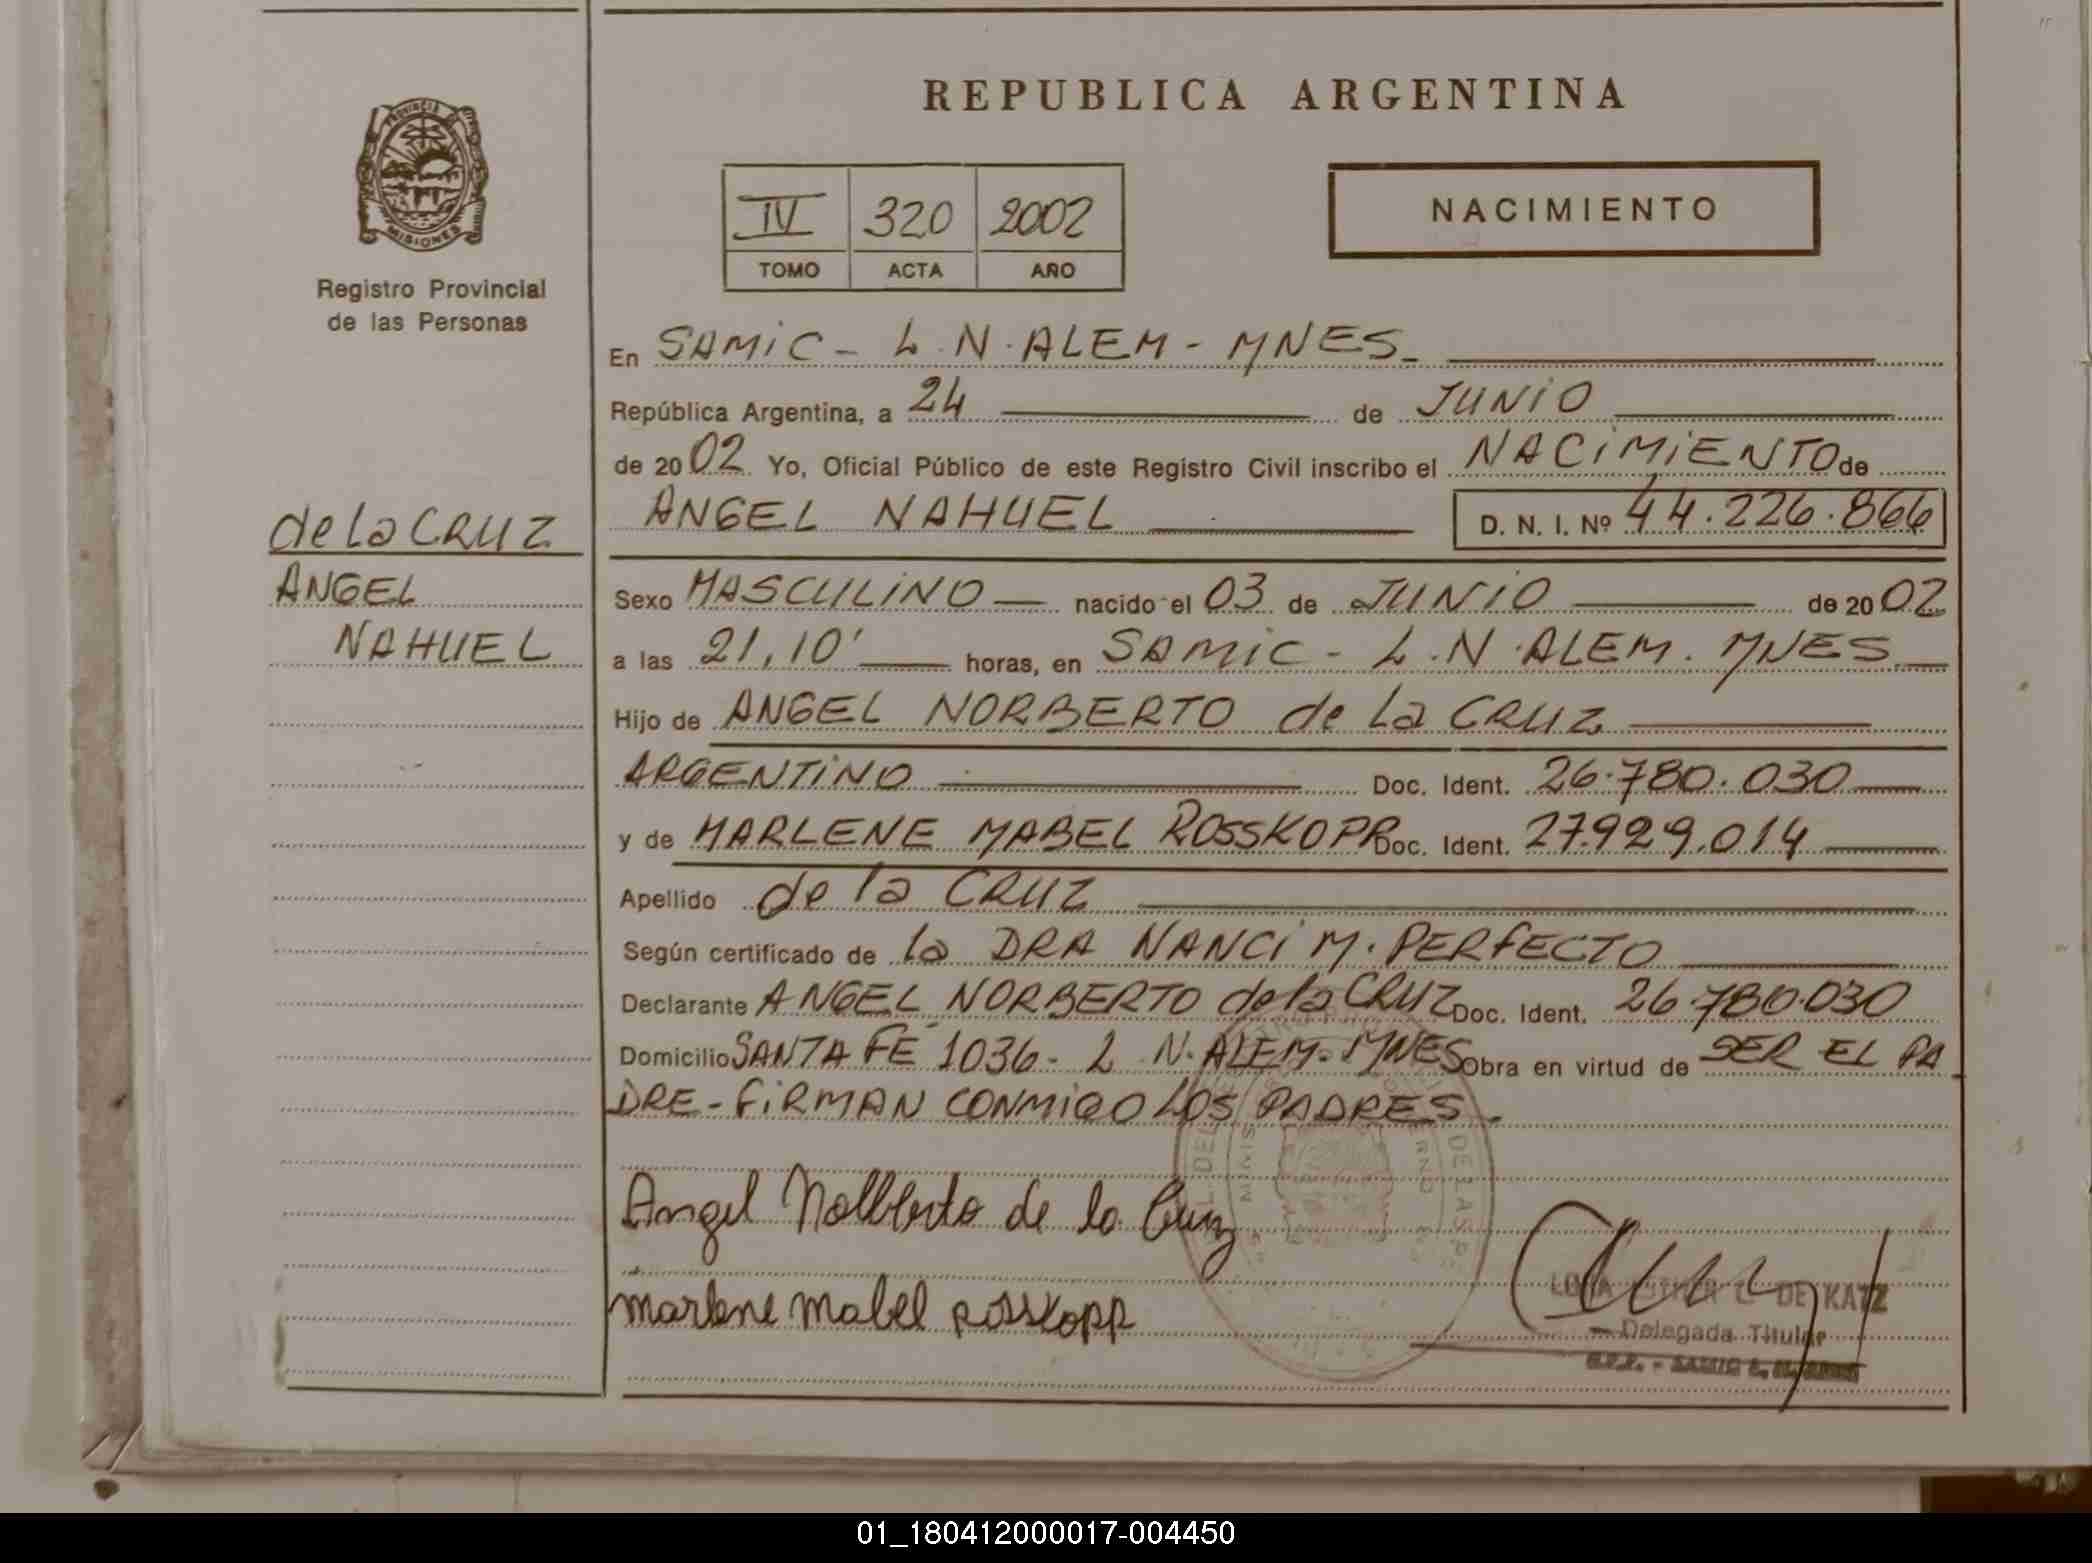 REPUBLICA ARGENTINA
PROVINCIA DE
MISIONES
Registro Provincial
de las Personas
IV 320 2002
TOMO ACTA AÑO
NACIMIENTO
En SAMIC - L.N. ALEM - MNES.
República Argentina, a 24 de JUNIO
de 2002 Yo, Oficial Público de este Registro Civil inscribo el NACIMIENTO de
ANGEL NAHUEL D. N. I. Nº 44.226.866
de la CRUZ
ANGEL
NAHUEL
Sexo MASCULINO nacido el 03 de JUNIO de 2002
a las 21,10' horas, en SAMIC - L.N. ALEM. MNES
Hijo de ANGEL NORBERTO de La CRUZ
ARGENTINO Doc. Ident. 26.780.030
y de MARLENE MABEL ROSSKOPP Doc. Ident. 27.929.014
Apellido de la CRUZ
Según certificado de la DRA NANCI M. PERFECTO
Declarante ANGEL NORBERTO de la CRUZ Doc. Ident. 26.780.030
Domicilio SANTA FE 1036 - L.N. ALEM - MNES Obra en virtud de SER EL PA
DRE - FIRMAN CONMIGO LOS PADRES.
Angel Nolberto de la Cruz
Marlene Mabel Rosskopp
DE KATZ
Delegada Titular
01_180412000017-004450